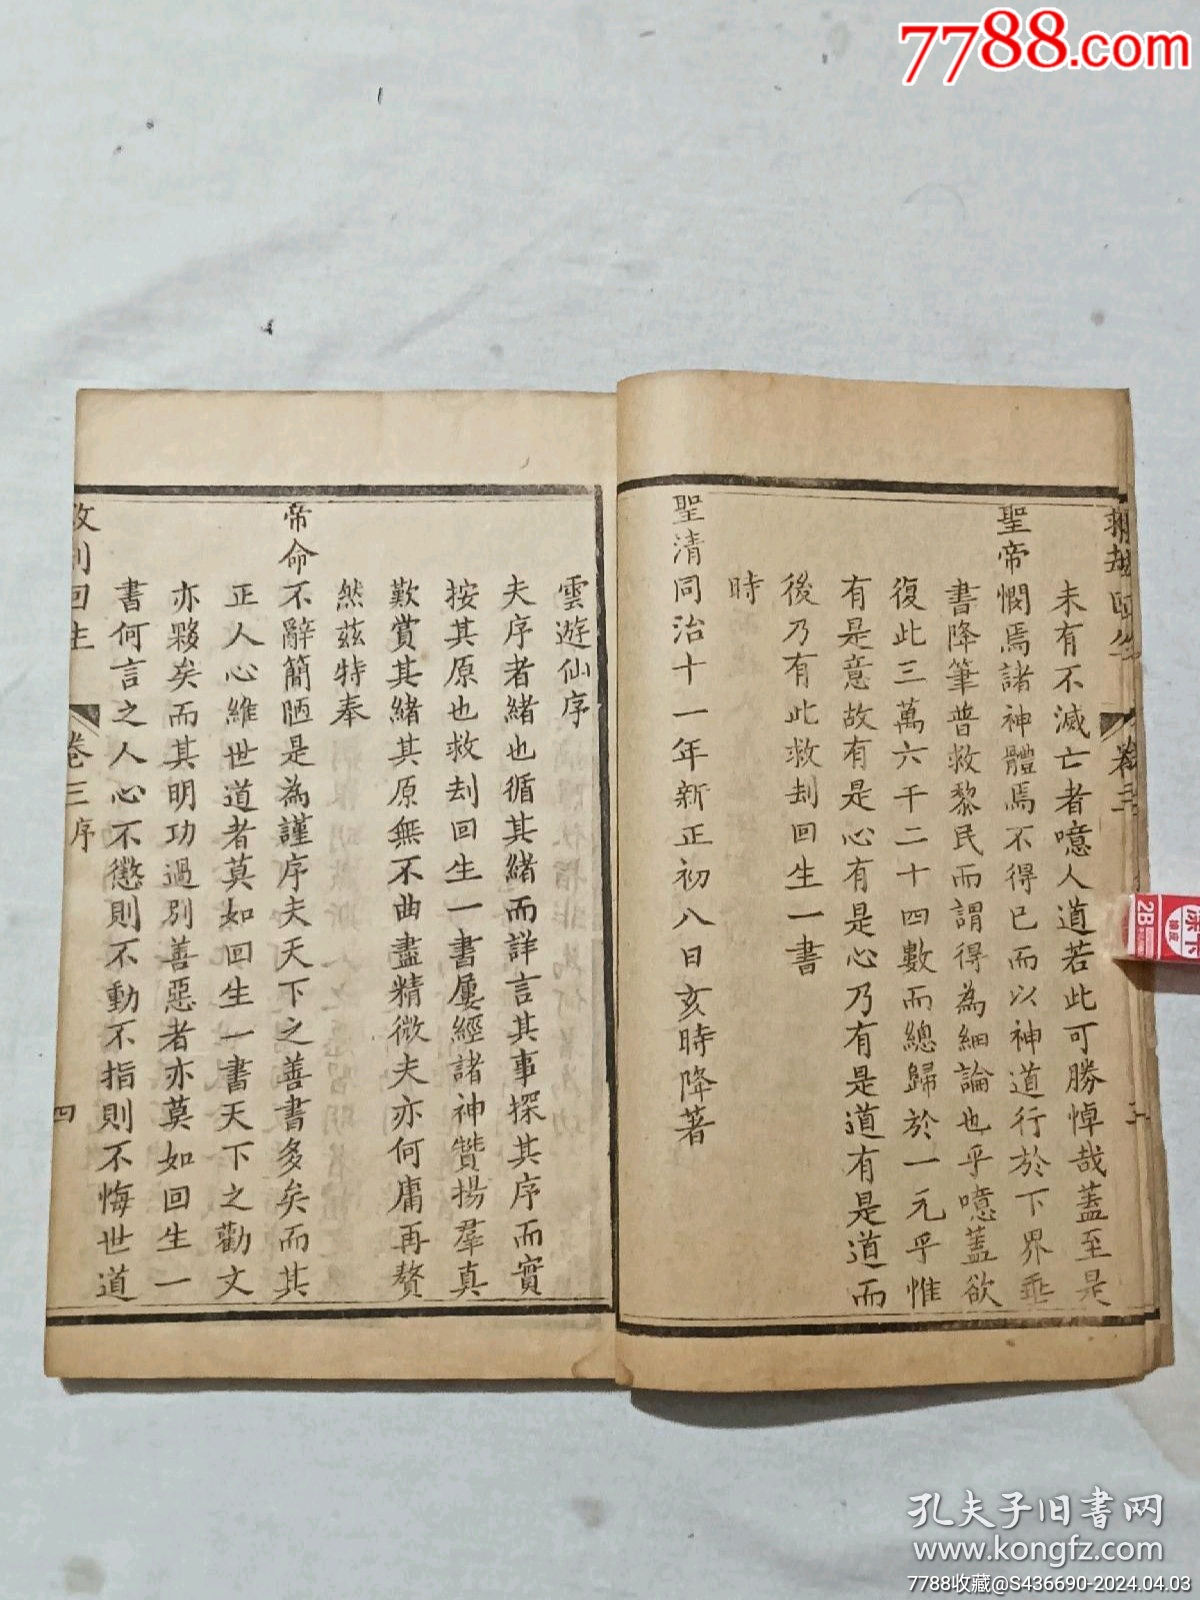 7788.com
未有不滅亡者噫人道若此可勝悼哉蓋至是
聖帝憫焉諸神體焉不得已而以神道行於下界乖
書降筆普救黎民而謂得為細論也乎噫蓋欲
復此三萬六千二十四數而總歸於一元乎惟
有是意故有是心有是心乃有是道有是道而
後乃有此救刦回生一書
時
聖清同治十一年新正初八日亥時降著
雲遊仙序
夫序者緒也循其緒而詳言其事探其序而實
按其原也救刦回生一書屢經諸神贊揚羣真
歎賞其緒其原無不曲盡精微夫亦何庸再贅
然茲特奉
帝命不辭簡陋是為謹序夫天下之善書多矣而其
正人心維世道者莫如回生一書天下之勸文
亦夥矣而其明功過別善惡者亦莫如回生一
書何言之人心不懲則不動不指則不悔世道
回生
卷三序
四
2B
孔夫子旧书网
www.kongfz.com
7788收藏@S436690-2024.04.03